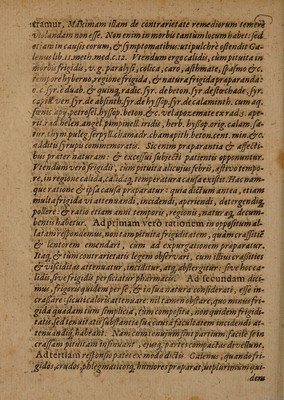 tramur, Maximam illam de contrarietate remediorum temerè
violandam non esse. Non enim in morbis tantum locum habet: sed
etiam in causis eorum, & symptomatibus: uti pulchrè ostendit Ga-
lenus lib. 11. meth. med. c. 12. Vtendum ergo calidis, cum pituita in
morbis frigidis, v. g. paralysi, colica, caro, asthmate, spasmo &c.
tempore hyberno, regione frigida, & natura frigida praeparanda:
è duab. & quinq. radic. syr. de beton. syr. de stoechade, syr.
capill. ven. syr. de absinth. syr. de hyssop. syr. de calaminth. cum aq.
foenic. apij, petrosel. hyssop. beton. &c. vel apozemate ex rad. 5. ape-
rit. rad. helen. angel. pimpinell. irid. herb. hyssop. orig. calam. sa-
tur. thym. puleg. serpyll. chamaedr. chamaepith. beton. cent. min. &c.
additis syrupis commemoratis. Sic enim praeparantia & affecti-
bus praeter naturam: & excessui subjecti patientis opponuntur.
Vtendum verò frigidis, cum pituita alicujus febris, aestivo tempo-
re, in regione calida, calidaq; temperatura causa existit. Hac nam-
que ratione & ipsa causa praeparatur: quia dictum antea, etiam
multa frigida vi attenuandi, incidendi, aperiendi, detergendiq;
pollere: & ratio etiam anni temporis, regionis, naturaeq; decum-
bentis habetur. Ad primam verò rationem in oppositum al-
latam respondemus, nudam pituitae frigiditatem, quàm crassitiē
& lentorem emendari, cum ad expurgationem praeparatur.
Itaq; & tum contrarietatis legem observari, cum illius crassities
& viscitas attenuatur, inciditur, atq; abstergitur: sive hoc ca-
lidis, sive frigidis perficiatur pharmacis. Ad secundam dici-
mus, frigora quidem persè, & in sua natura considerata, esse in-
crassare: sicuti caloris attenuare: nil tamen obstare, quo minus fri-
gida quaedam tum simplicia, tum composita, non quidem frigidi-
tatis, sed tenuitatis substantiae suae causa facultatem incidendi at-
tenuandiq; habeant. Nam cum tenuium sint partium: facilè se in
crassam pituitam insinuant, ejusq; partes compactas divellunt.
Ad tertiam responsio patet ex modo dictis. Galenus, quando fri-
gidos, crudos, phlegmaticosq; humores praeparat, ut plurimum qui-
dem